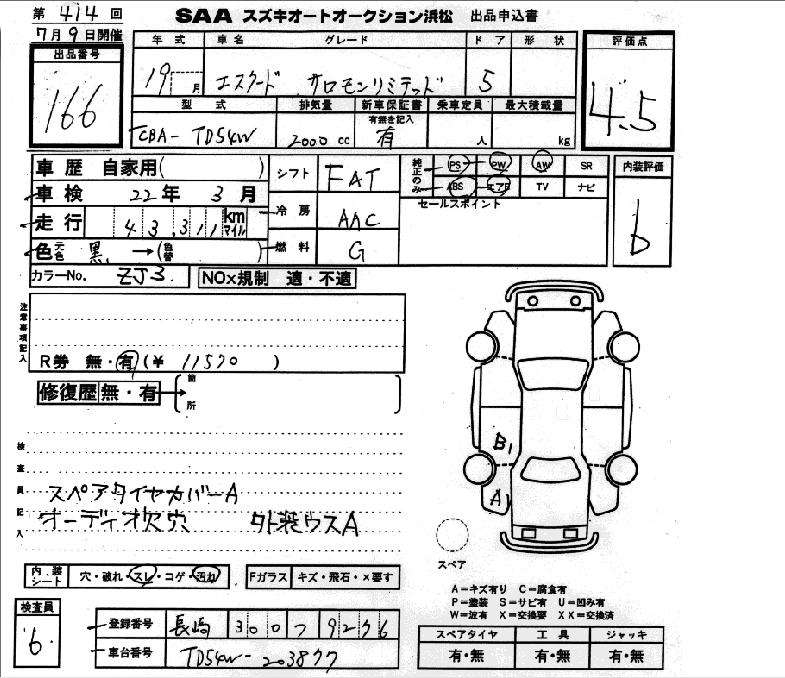 第 414 回
7月9日開催
SAA スズキオートオークション浜松 出品申込書
出品番号
166
年式 車名 グレード ドア 形状
19 月 エスクード サロモンリミテッド 5
型式 排気量 新車保証書 乗車定員 最大積載量
有無を記入
TCBA- TD54W 2000 cc 有 人 kg
評価点
4.5
車歴 自家用( )
シフト FAT
純正のみ PS PW AW SR
ABS エアB TV ナビ
内装評価
b
車検 22年 3月
冷房 AAC
セールスポイント
走行 43,311 km マイル
色 元色 黒 →(色替 )
燃料 G
カラーNo. ZJ3
NOx規制 適・不適
注意事項記入
R券 無・有(¥ 11520 )
修復歴 無・有→ 箇所
検査員記入
スペアタイヤカバーA
オーディオ欠穴 外装ウスA
B1
A1
スペア
内装シート 穴・破れ・スレ・コゲ・汚れ
Fガラス キズ・飛石・×要す
A=キズ有り C=腐食有
P=塗装 S=サビ有 U=凹み有
W=波有 X=交換要 XX=交換済
検査員
6
登録番号 長崎 300 ワ 9276
車台番号 TD54W-203877
スペアタイヤ 工具 ジャッキ
有・無 有・無 有・無